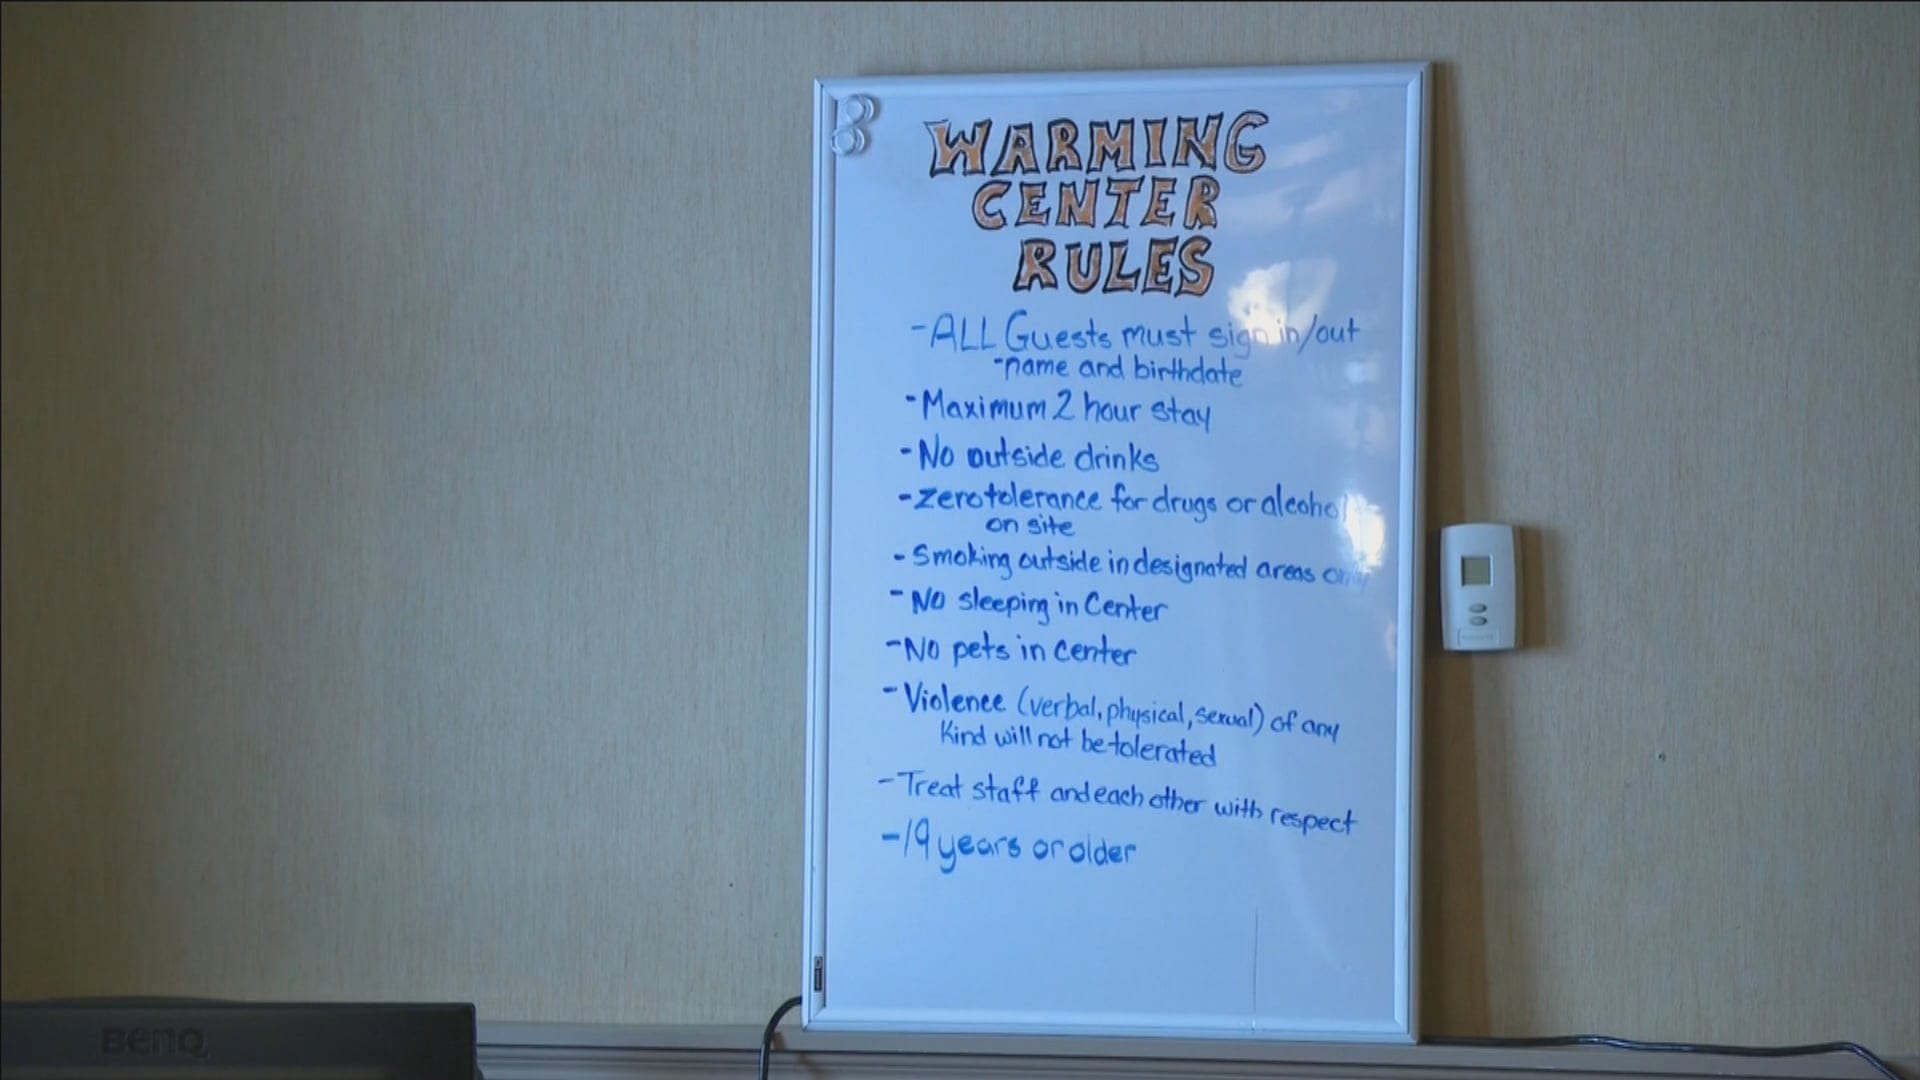 WARMING
CENTER
RULES
- ALL Guests must sign in/out
- name and birthdate
- Maximum 2 hour stay
- No outside drinks
- Zero tolerance for drugs or alcohol
on site
- Smoking outside in designated areas only
- No sleeping in Center
- No pets in center
- Violence (verbal, physical, sexual) of any
Kind will not be tolerated
- Treat staff and each other with respect
- 19 years or older
BENQ